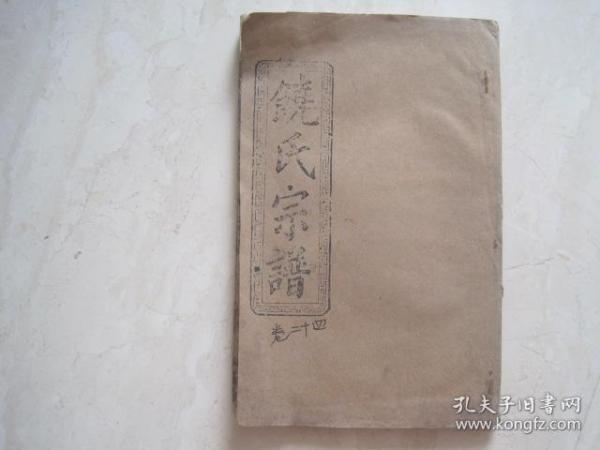 饒氏宗譜
卷二十四
孔夫子旧書网
www.kongfz.com